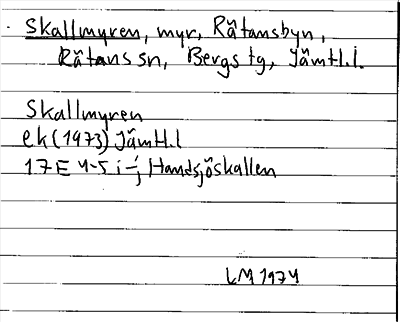 Skallmyren, myr, Rätansbyn,
Rätans sn, Bergs tg, Jämtl.l.
Skallmyren
ek (1973) Jämtl.l
17E 4-5 i-j Handsjöskallen
LM 1974